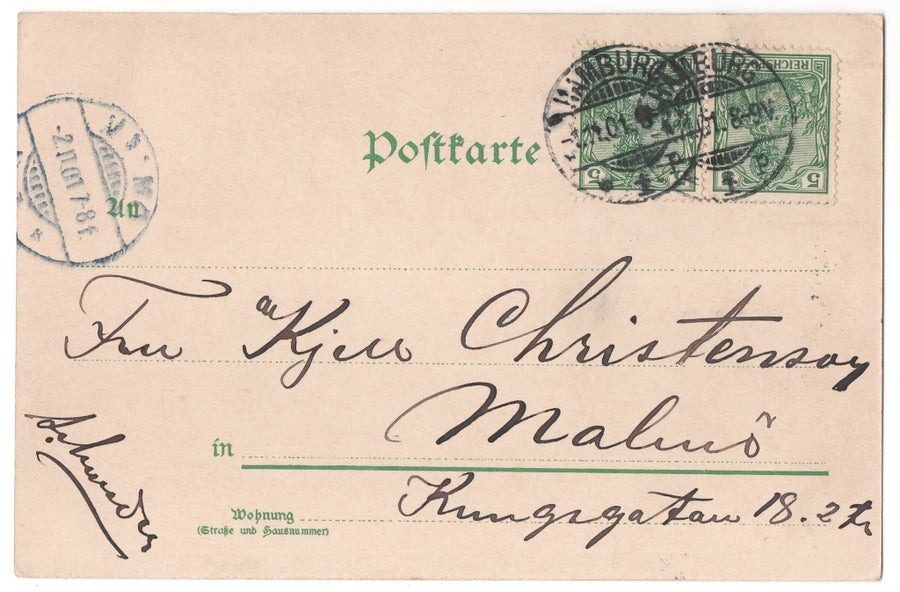 REICHSPOST
5
5
HAMBURG
HAMBURG
8-9V.
1 P.
1 P.
Postkarte
2.11.01.7-8 f.
An
Fru Kjell Christenson
Malmö
in
Kungsgatan 18. 2 tr
Wohnung
(Straße und Hausnummer)